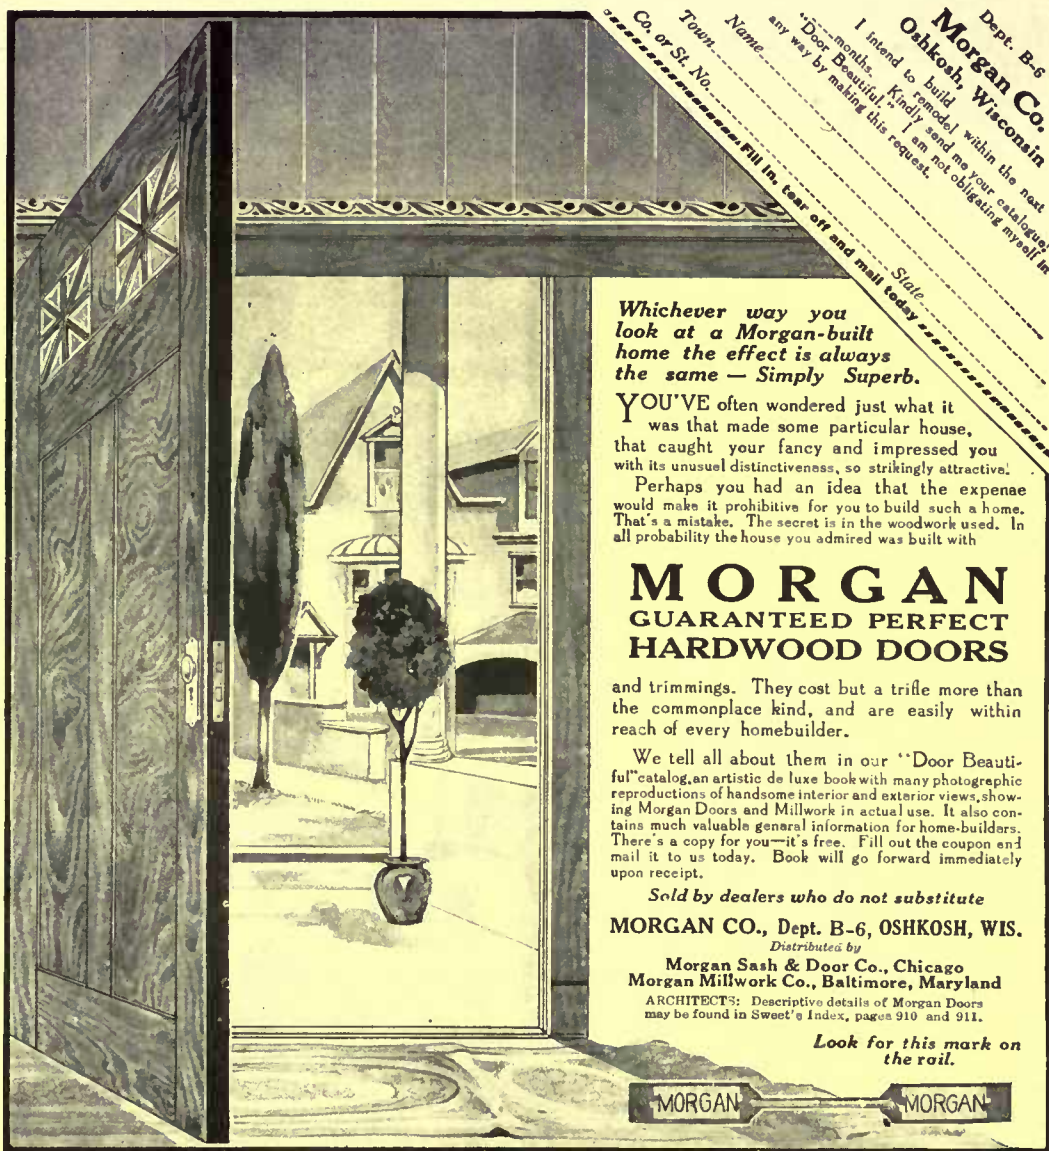 Dept. B-6
Morgan Co.
Oshkosh, Wisconsin
I intend to build
remodel within the next
----months. Kindly send me your catalogue:
"Door Beautiful." I am not obligating myself in
any way by making this request.
Name
Town
State
Co. or St. No.
Fill in, tear off and mail today
Whichever way you
look at a Morgan-built
home the effect is always
the same — Simply Superb.
YOU'VE often wondered just what it
was that made some particular house,
that caught your fancy and impressed you
with its unusuel distinctiveness, so strikingly attractive.
Perhaps you had an idea that the expense
would make it prohibitive for you to build such a home.
That's a mistake. The secret is in the woodwork used. In
all probability the house you admired was built with
MORGAN
GUARANTEED PERFECT
HARDWOOD DOORS
and trimmings. They cost but a trifle more than
the commonplace kind, and are easily within
reach of every homebuilder.
We tell all about them in our "Door Beauti-
ful" catalog, an artistic de luxe book with many photographic
reproductions of handsome interior and exterior views, show-
ing Morgan Doors and Millwork in actual use. It also con-
tains much valuable general information for home-builders.
There's a copy for you—it's free. Fill out the coupon and
mail it to us today. Book will go forward immediately
upon receipt.
Sold by dealers who do not substitute
MORGAN CO., Dept. B-6, OSHKOSH, WIS.
Distributed by
Morgan Sash & Door Co., Chicago
Morgan Millwork Co., Baltimore, Maryland
ARCHITECTS: Descriptive details of Morgan Doors
may be found in Sweet's Index, pages 910 and 911.
Look for this mark on
the rail.
MORGAN MORGAN